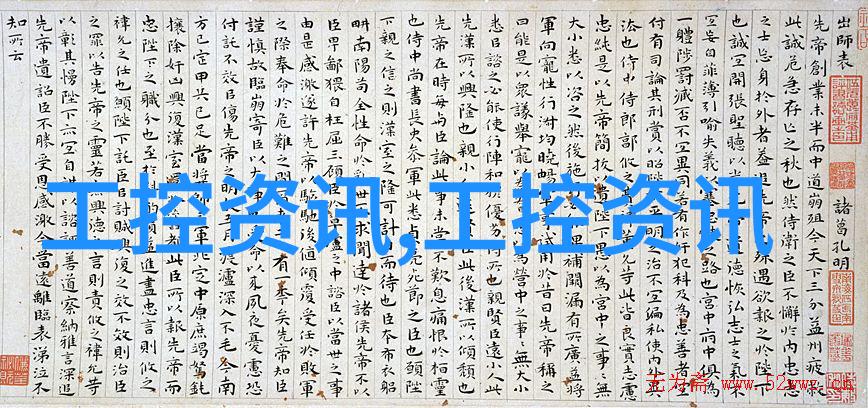 出師表
諸葛孔明
先帝創業未半而中道崩殂今天下三分益州疲敝
此誠危急存亡之秋也然侍衛之臣不懈於内忠志
之士忘身於外者盖追先帝之殊遇欲報之於陛下
也誠宜開張聖聽以光先帝遺德恢弘志士之氣不
宜妄自菲薄引喻失義以塞忠諫之路也宫中府中俱為
一體陟罰臧否不宜異同若有作奸犯科及為忠善者宜
付有司論其刑賞以昭陛下平明之治不宜偏私使内外異
法也侍中侍郎郭攸之費禕董允等此皆良實志慮
忠純是以先帝簡拔以遺陛下愚以為宫中之事事無
大小悉以咨之然後施行必能裨補闕漏有所廣益將
軍向寵性行淑均曉暢軍事試用於昔日先帝稱之
曰能是以衆議舉寵以為督愚以為營中之事事無大小
悉以諮之必能使行陣和穆優劣得所也親賢臣遠小人此
先漢所以興隆也親小人遠賢臣此後漢所以傾頹也
先帝在時每與臣論此事未嘗不歎息痛恨於桓靈
也侍中尚書長史參軍此悉貞亮死節之臣也願陛
下親之信之則漢室之隆可計日而待也臣本布衣躬
耕南陽苟全性命於亂世不求聞達於諸侯先帝不以
臣卑鄙猥自枉屈三顧臣於草廬之中諮臣以當世之事
由是感激遂許先帝以驅馳後值傾覆受任於敗軍
之際奉命於危難之間爾來二十有一年矣先帝知臣
謹慎故臨崩寄臣以大事也受命以來夙夜憂慮恐
付託不效以傷先帝之明故五月渡瀘深入不毛今南
方已定甲兵已足當將帥三軍北定中原庶竭駑鈍
攘除奸凶興復漢室還於舊都此臣所以報先帝而
忠陛下之職分也至於斟酌損益進盡忠言則攸之
禕允之任也願陛下託臣以討賊興復之效不效則治臣
之罪以告先帝之靈若無興德之言則責攸之禕允等
以彰其慢陛下亦宜自謀以諮諏善道察納雅言深追
先帝遺詔臣不勝受恩感激今當遠離臨表涕泣不
知所云
工控资讯,工控资讯
无为斋 www.52wwz.cn